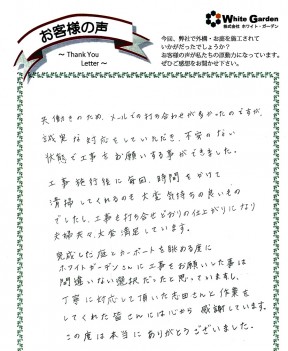 お客様の声
～ Thank You
Letter ～
White Garden
株式会社 ホワイト・ガーデン
今回、弊社で外構・お庭を施工されて
いかがだったでしょうか？
お客様の声が私たちの原動力になっています。
ぜひご感想をお聞かせ下さい。
共働きのため、メールでの打ち合わせが多かったのですが、
誠実な対応をしていただき、不安のない
状態で工事をお願いする事ができました。
工事施行後に毎回、時間をかけて
清掃してくれるのも大変気持ちの良いもの
でしたし、工事も打ち合せどおりの仕上がりになり
夫婦共々、大変満足しています。
完成した庭とカーポートを眺める度に
ホワイトガーデンさんに工事をお願いした事は
間違いない選択だったと思っていますし、
丁寧に対応して頂いた志田さんと作業を
してくれた皆さんには心から感謝しています。
この度は本当にありがとうございました。